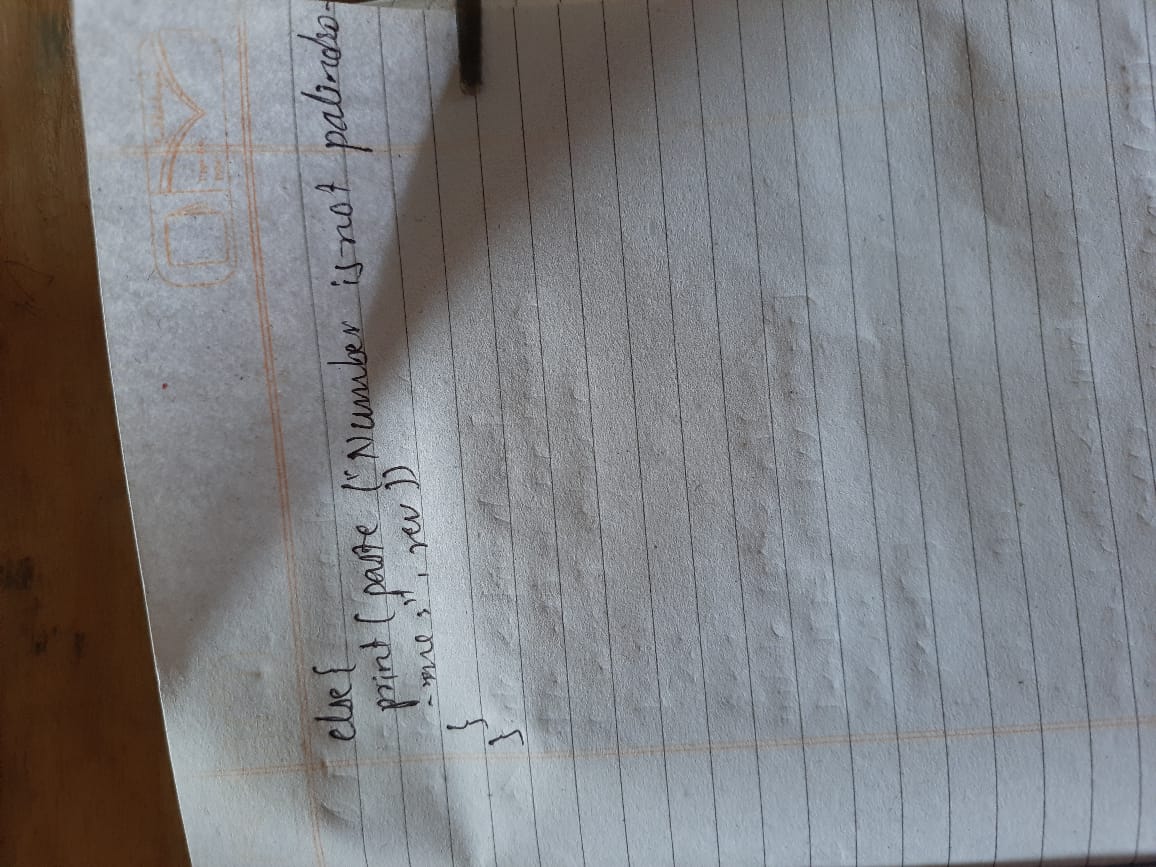 else{
print(paste("Number is not palindro-
-me:", rev))
}
}